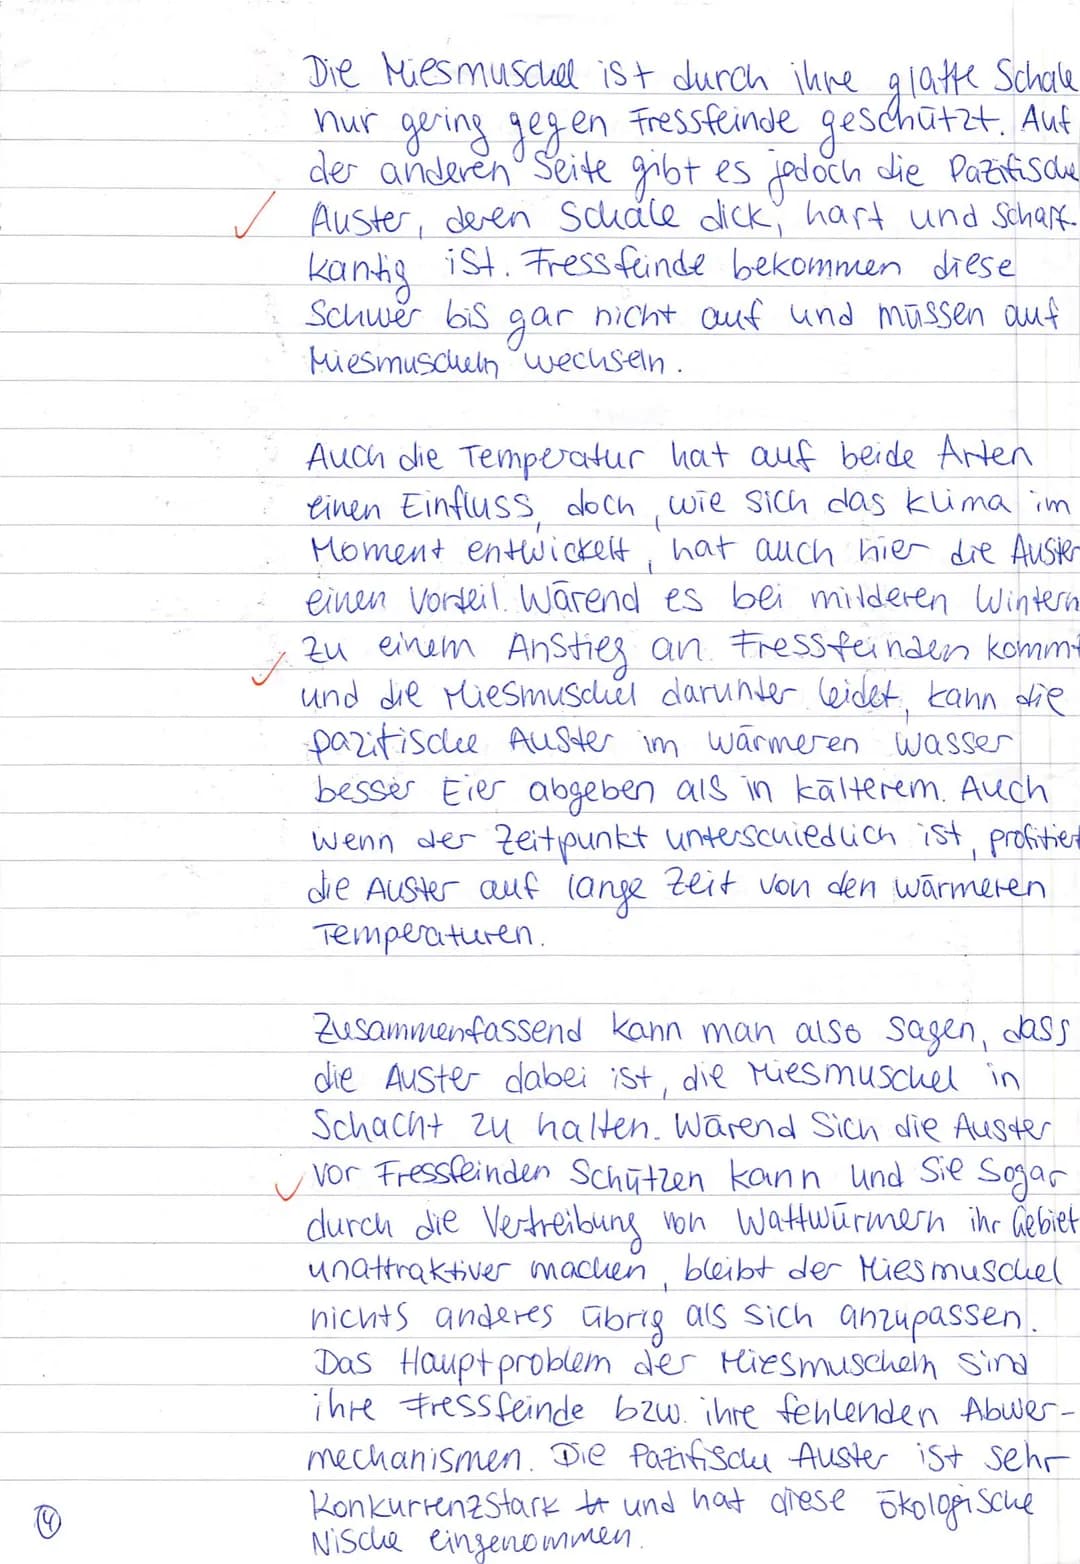 Die Miesmuschel ist durch ihre glatte Schale
nur gering gegen Fressfeinde geschützt. Auf
der anderen Seite gibt es jedoch die Pazifische
Auster, deren Schale dick, hart und scharf-
kantig ist. Fressfeinde bekommen diese
schwer bis gar nicht auf und müssen auf
Miesmuscheln wechseln.
Auch die Temperatur hat auf beide Arten
einen Einfluss, doch, wie sich das Klima im
Moment entwickelt, hat auch hier die Auster
einen Vorteil. Wärend es bei milderen Wintern
zu einem Anstieg an Fressfeinden kommt
und die Miesmuschel darunter leidet, kann die
pazifische Auster im wärmeren Wasser
besser Eier abgeben als in kälterem. Auch
wenn der Zeitpunkt unterschiedlich ist, profitiert
die Auster auf lange Zeit von den wärmeren
Temperaturen.
Zusammenfassend kann man also sagen, dass
die Auster dabei ist, die Miesmuschel in
Schacht zu halten. Wärend sich die Auster
vor Fressfeinden schützen kann und sie sogar
durch die Vertreibung von Wattwürmern ihr Gebiet
unattraktiver machen, bleibt der Miesmuschel
nichts anderes übrig als sich anzupassen.
Das Hauptproblem der Miesmuscheln sind
ihre Fressfeinde bzw. ihre fehlenden Abwer-
mechanismen. Die Pazifische Auster ist sehr
konkurrenzstark und hat diese ökologische
④ Nische eingenommen.